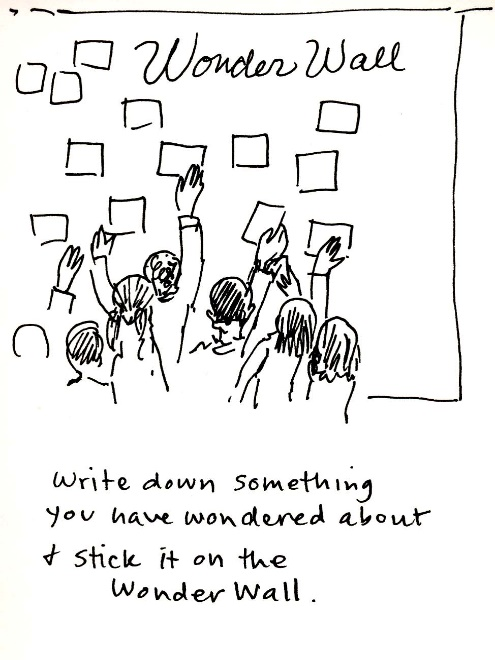 Wonder Wall
Write down something
you have wondered about
& stick it on the
Wonder Wall.